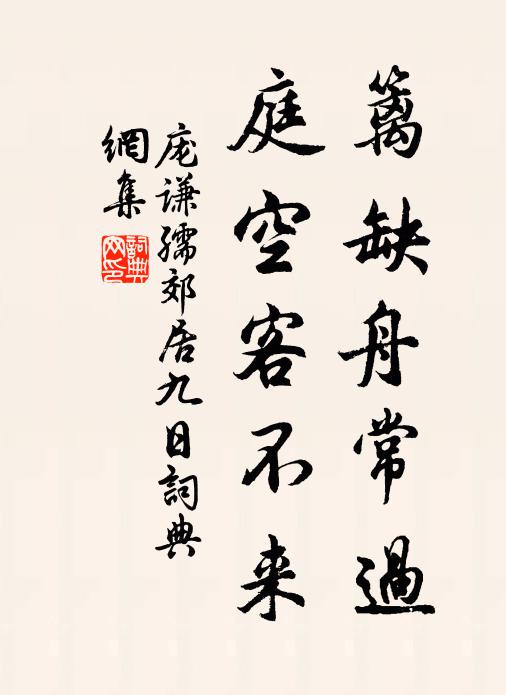 篱缺舟常過
庭空客不来
庞谦孺郊居九日詞典
網集
詞典
网印